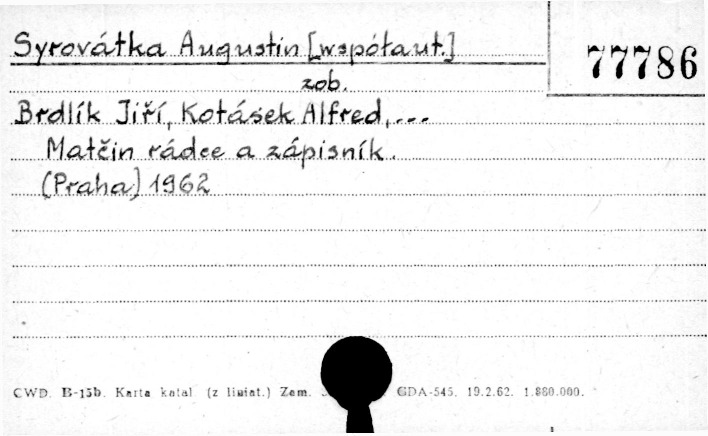 Syrovátka Augustin [współaut.]
77786
zob.
Brdlík Jiří, Kotásek Alfred,...
Matčin rádce a zápisník.
(Praha) 1962
CWD. B-15b. Karta katal (z liniat.) Zam. GDA-545. 19.2.62. 1.880.000.